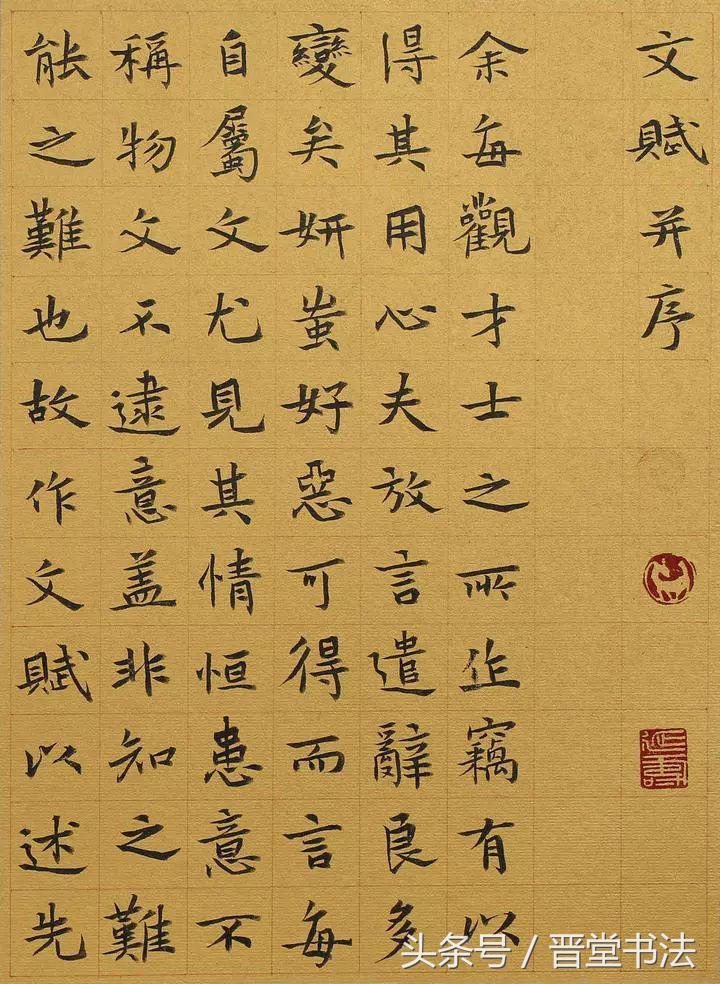 文賦并序
余每觀才士之所作竊有以
得其用心夫放言遣辭良多
變矣妍蚩好惡可得而言每
自屬文尤見其情恒患意不
稱物文不逮意盖非知之難
能之難也故作文賦以述先
头条号 / 晋堂书法